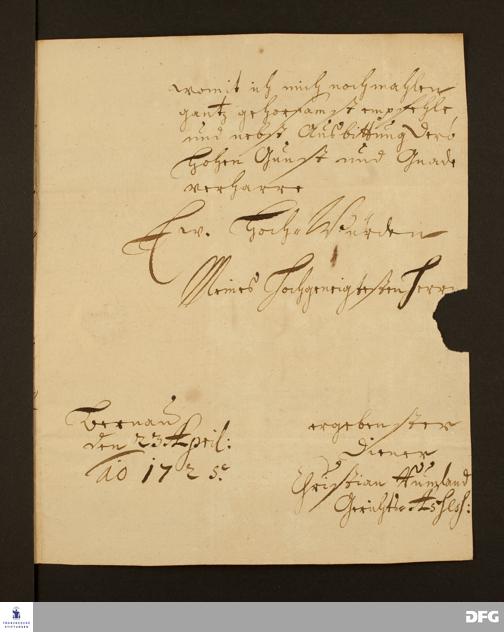 womit ich mich nochmahlen
gantz gehorsamst empfehle
und nebst Ausbittung Dero
hohen Gunst und Gnade
verharre
Ew. Hoch-Würden
Meines Hochgeneigtesten Herrn
Bernau
den 23 April:
ao 1725.
ergebenster
Diener
Christian
Gerichts-
FRANCKESCHE
STIFTUNGEN
DFG